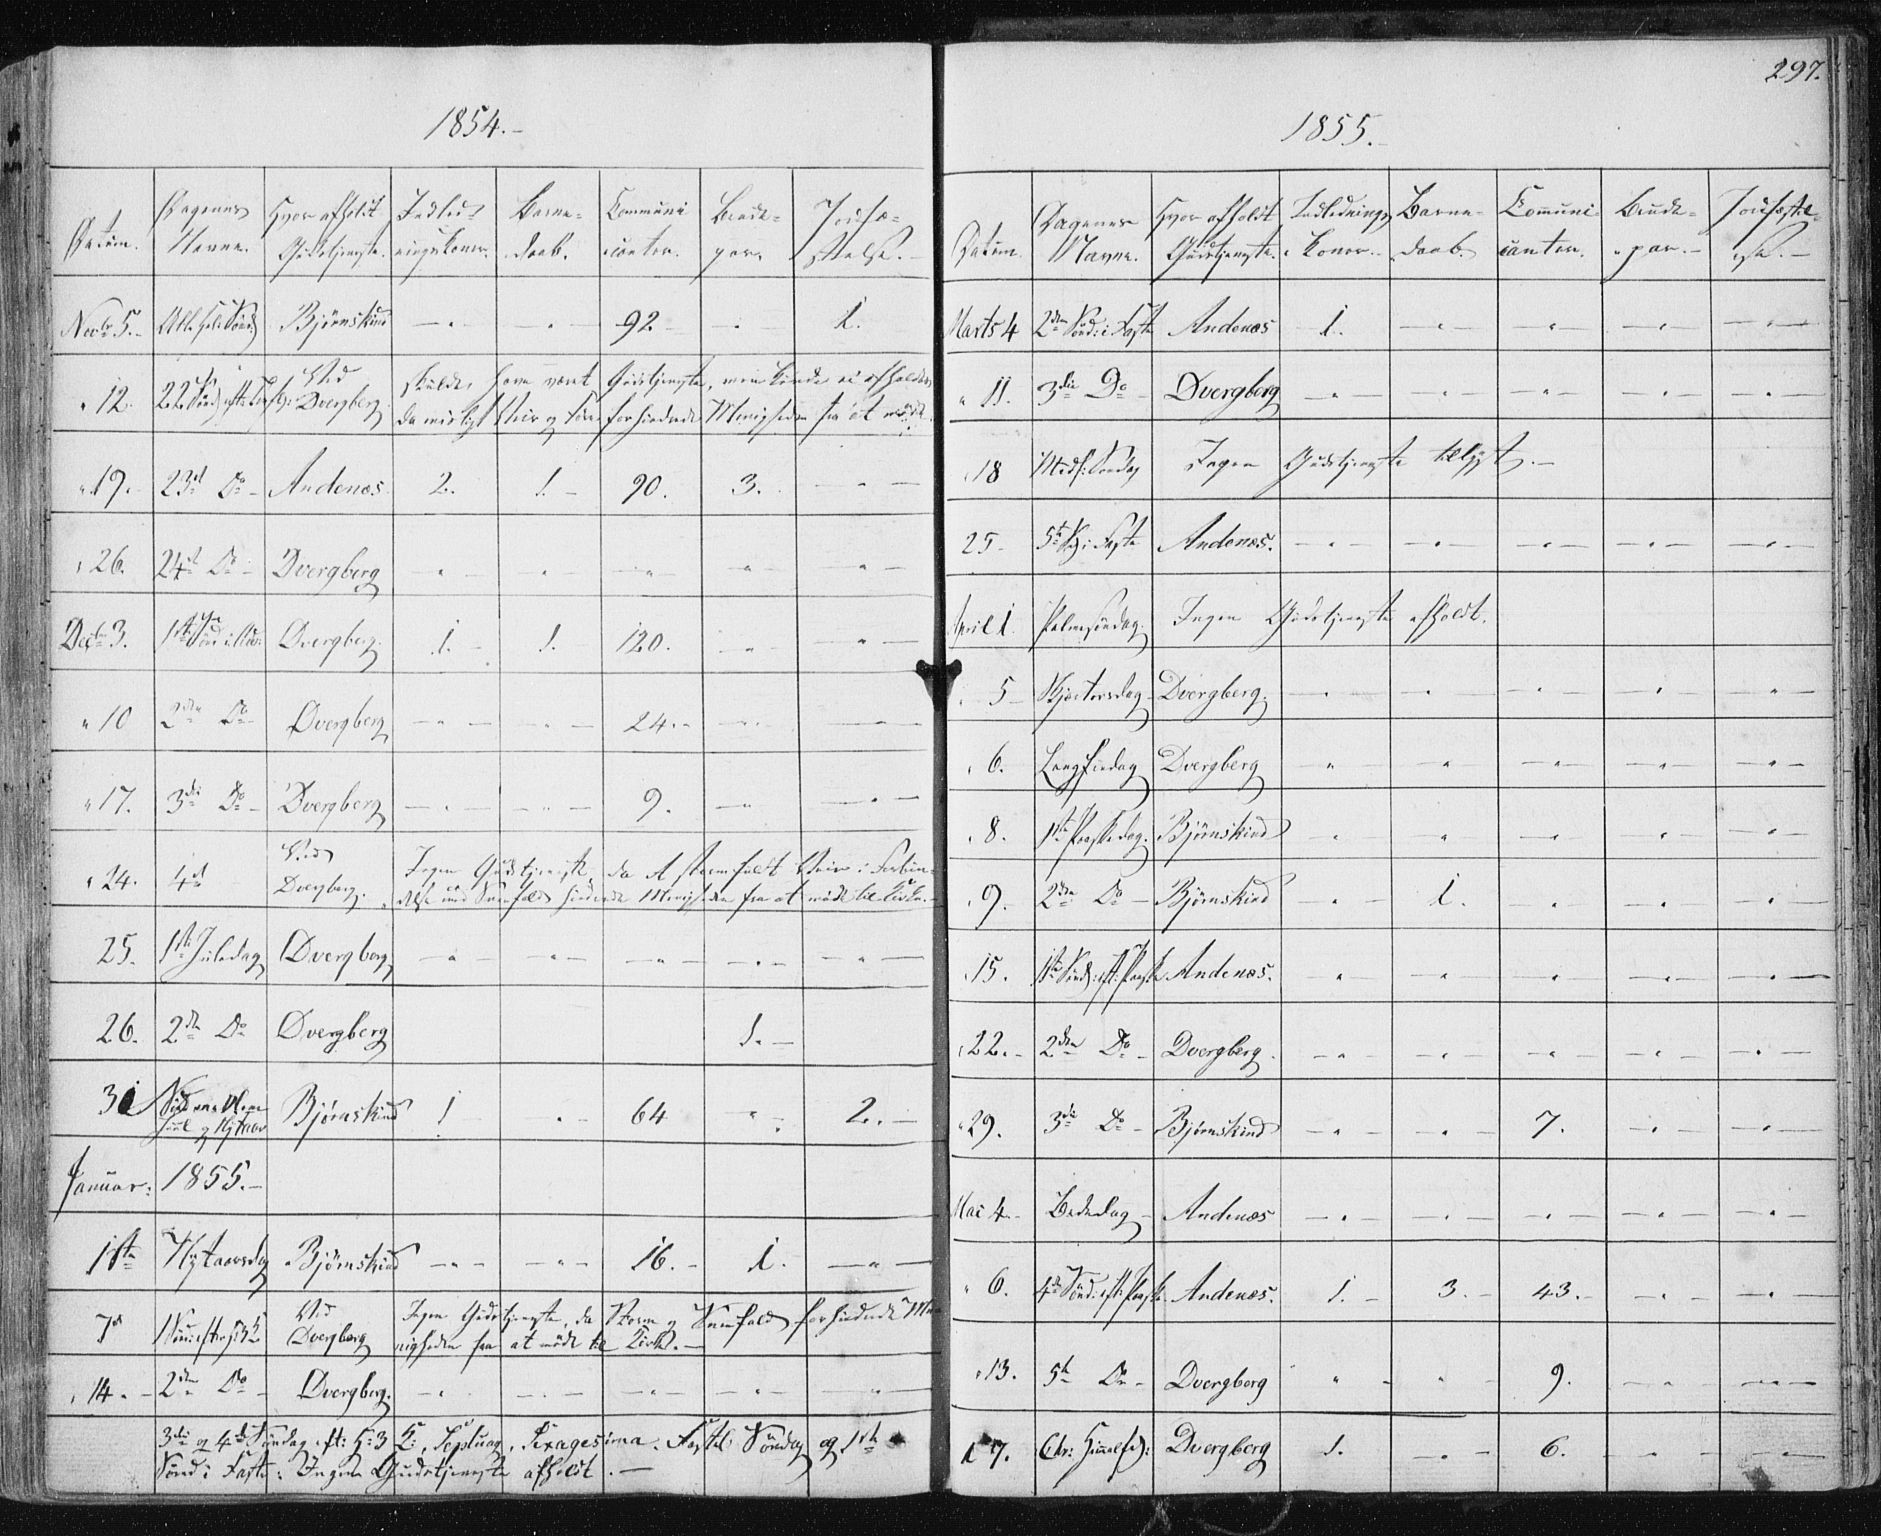 297.
1854.-
Datum. Dagenes Navne. Hvor afholdt Gudstjeneste. Indled- ningskoner. Barne- daab. Communi- canter. Brude- par. Trolovelse.
Novbr 5. Alle Helg. Sønd. Bjørnskind - - 92 - 1.
" 12. 22de Sønd. efter Ved Dvergberg skulde have været Gudstjeneste, men kunde ei afholdes
da uveirligt Veir og Føre forhindrede Menigheden fra at møde.
" 19. 23d Do - Andenæs 2. 1. - 90. 3. - " -
" 26. 24d Do - Dvergberg " - " - " - " - " -
Decbr 3. 1ste Sønd i Adv. Dvergberg. 1. - 1. 120. - " - - " -
" 10 2den Do Dvergberg - " - - " - 24. - - " - - " -
" 17. 3die Do - Dvergberg - " - - " - 9. - " - - " -
" 24. 4d Ved Dvergberg. Ingen Gudstjeneste, da et stormfuldt Veir i Forbin-
delse med Sneefald hindrede Menigheden fra at møde til Kirke. -
25. 1ste Juledag Dvergberg - " - - " - - " - - " - - " -
26. 2den Do Dvergberg 1. -
31 Søndag mellem Juul og Nytaar Bjørnskind 1 " - 64 " - 2. -
Januar: 1855. -
1ste Nytaarsdag Bjørnskind - " - - " - 16. - 1. - " -
7d 1 Sønd. efter H 3 K Ved Dvergberg Ingen Gudstjeneste, da Storm og Sneefald forhindrede Me-
nigheden fra at møde til Kirke. -
" 14. - 2den Do - Dvergberg. - " - - " - - " - - " - "
3die og 4de Søndag eft: H: 3 K:, Septuag., Sexagesima. Fastel. Søndag og 1ste
Sønd i Faste: Ingen Gudstjeneste afholdt. -
1855.
Datum. Dagenes Navne. Hvor afholdt Gudstjeneste. Indlednings- koner. - Barne- daab. Communi- canter. Brude- par. -
Marts 4 2den Sønd: i Faste Andenæs 1. " - " - " - " -
" 11. 3die Do - Dvergberg - " - - " - - " - - " - - " -
" 18 Midf: Søndag Ingen Gudstjeneste tillyst. -
25 - 5te S: i Faste Andenæs. - " - - " - - " - - " - - " -
April 1. Palmesøndag. Ingen Gudstjeneste afholdt.
" 5 - Skjærtorsdag Dvergberg. " - " - " - " - " -
" 6. Langfredag Dvergberg " - " - " - " - " -
" 8. 1ste Paaskedag. Bjørnskind " - " - " - " - " -
" 9. 2den Do - Bjørnskind " - 1. - " - - " - - " -
" 15. 1ste Sønd: eft: Paaske Andenæs. " - " - " - " - " -
" 22. - 2den Do - Dvergberg. - " - - " - - " - - " - - " -
" 29. 3die Do - Bjørnskind - " - - " - 7. - " - - " -
Mai 4. - Bededag - Andenæs - " - - " - - " - - " - - " -
" 6. 4de Sønd: eft: Paaske Andenæs. 1. - 3. - 43. - - " - - " -
" 13. 5te Do - Dvergberg " - " - 9. - " - - " -
17. Chr: Himmelf: Dvergberg 1. - " - 6. - " - - " -